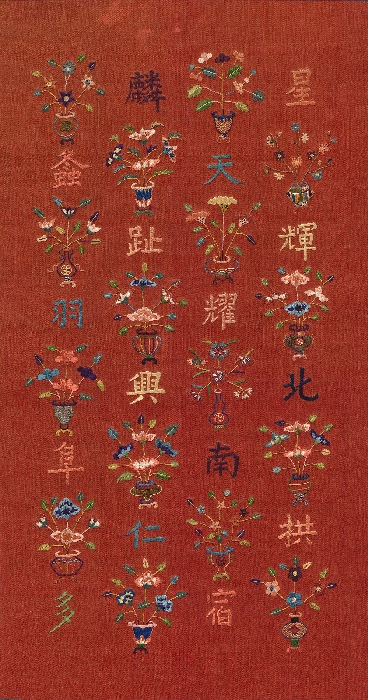 星輝北拱
天耀南宿
麟趾興仁
螽羽阜多